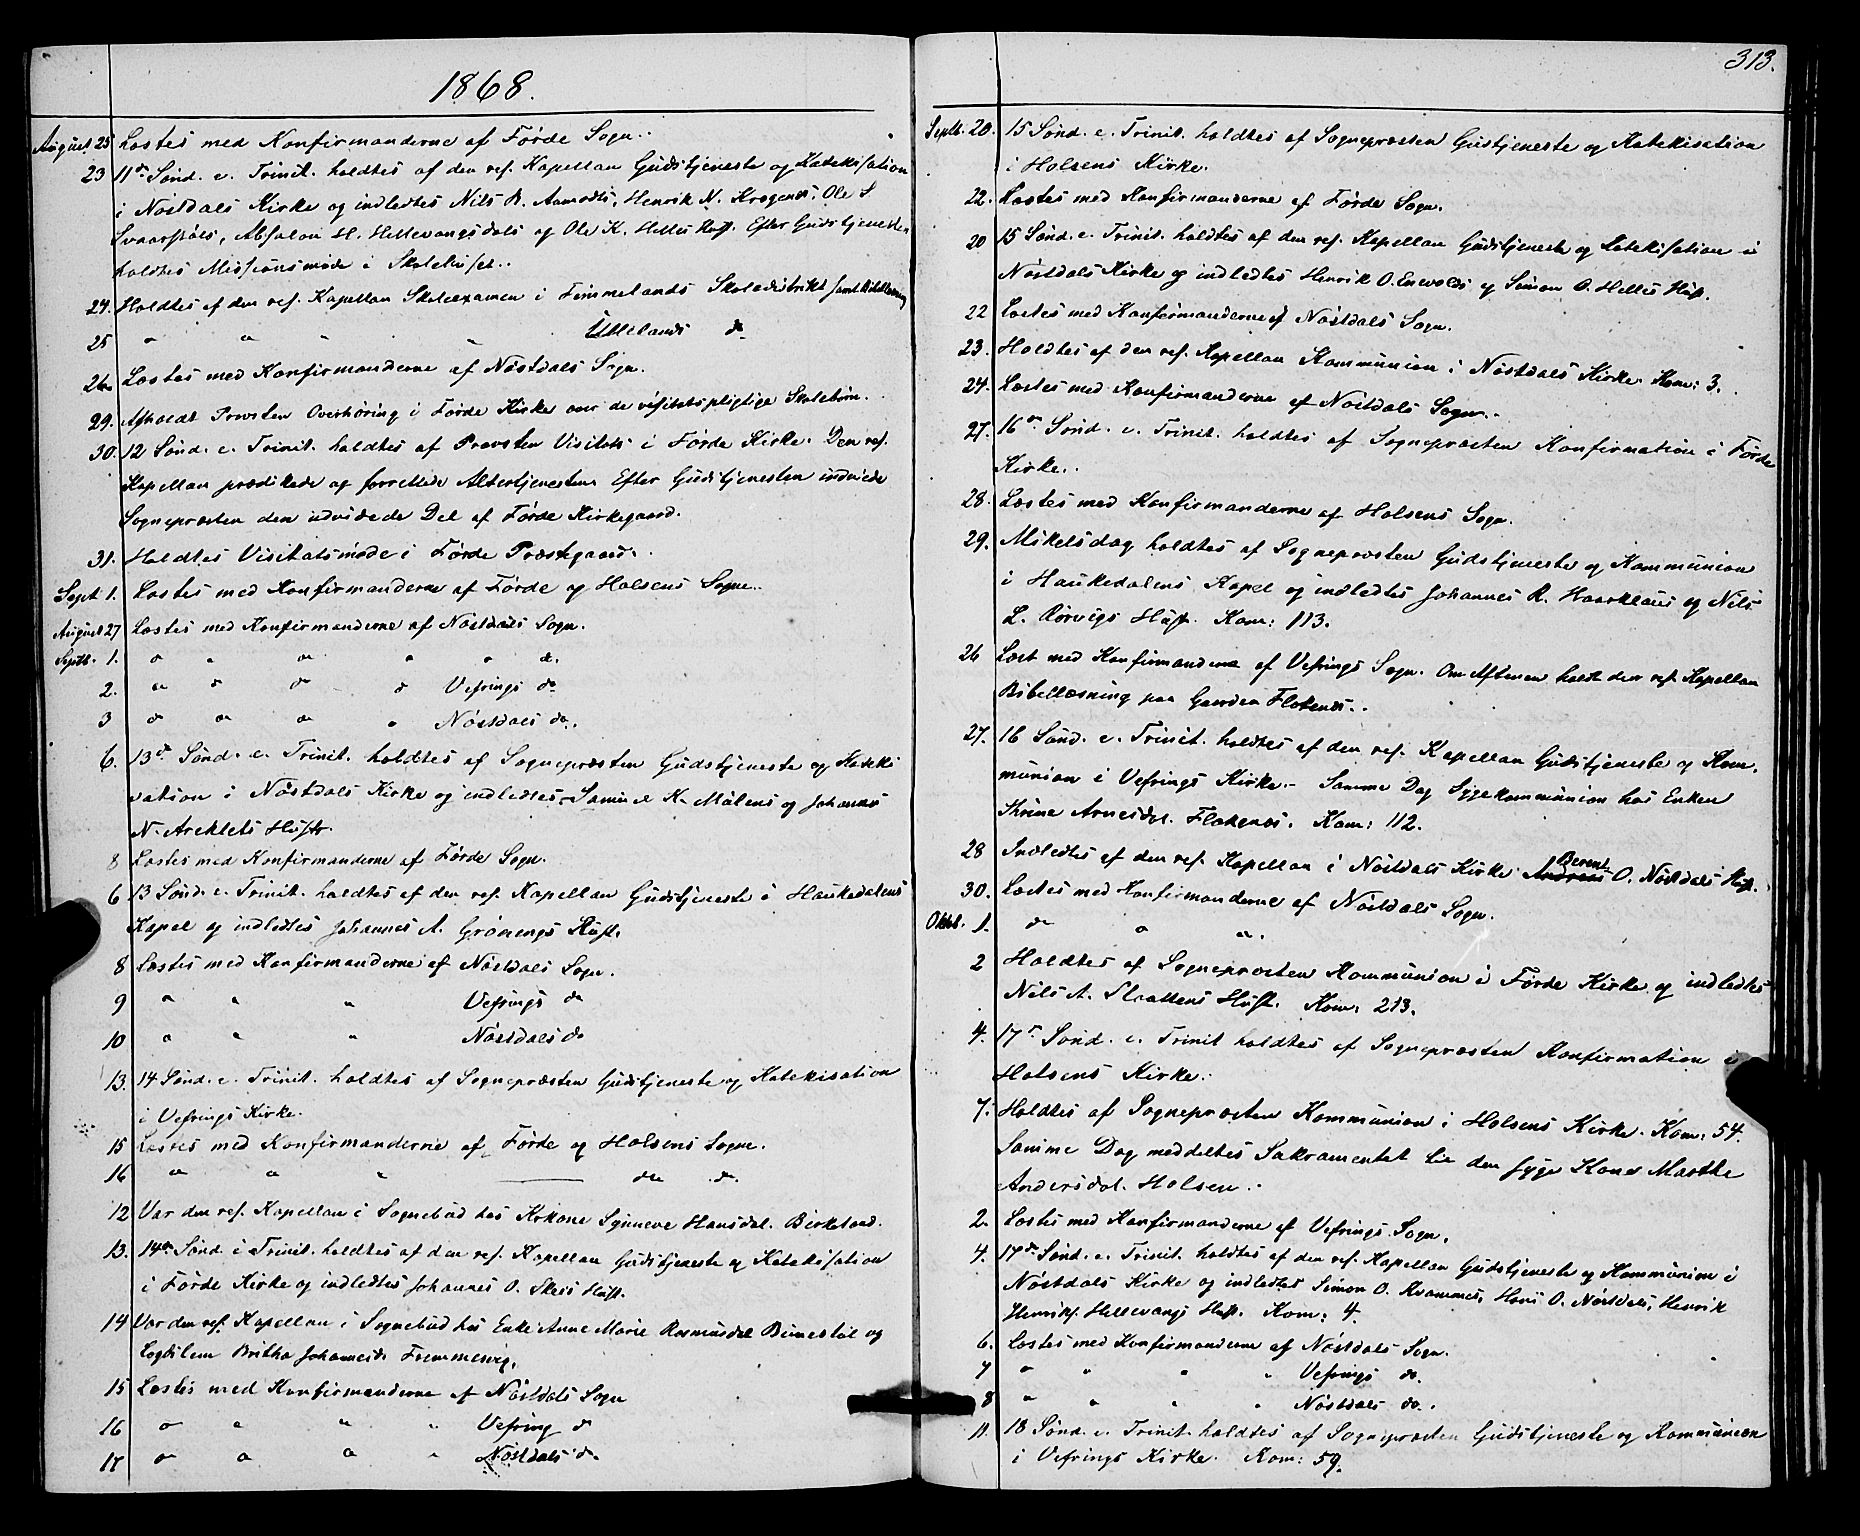 1868.
August 25 Læstes med Konfirmanderne af Førde Sogn.
23 11te Sønd. e. Trinit. holdtes af den res. Kapellan Gudstjeneste og Katekisation
i Nøstdals Kirke og indledtes Nils R. Aamodts, Henrik N. Krogenes, Ole S.
Svaarstads, Absalon H. Hellevangsdals og Ole K. Helles Hust. Efter Gudstjenesten
holdtes Missionsmøde i Skolehuset.
24. Holdtes af den res. Kapellan Skoleexamen i Fimmelands Skoledistrikt samt Bibellæsning
25 " " " " Ullelands do
26 Læstes med Konfirmanderne af Nøstdals Sogn.
29. Afholdt Provsten Overhøring i Førde Kirke over de visitatspligtige Skolebørn.
30. 12 Sønd. e. Trinit. holdtes af Provsten Visitats i Førde Kirke. Den res.
Kapellan prædikede og forrettede Altertjenesten. Efter Gudstjenesten indviede
Sognepræsten den udvidede Del af Førde Kirkegaard.
31. Holdtes Visitatsmøde i Førde Præstegaard.
Sept 1. Læstes med Konfirmanderne af Førde og Holsens Sogne.
August 27 Læstes med Konfirmanderne af Nøstdals Sogn.
Septb. 1. " " " " " d.
2. " " " " Vefrings do
3 " " " " Nøstdals do.
6. 13de Sønd. e. Trinit. holdtes af Sognepræsten Gudstjeneste og Kateki
sation i Nøstdals Kirke og indledtes Samuel K. Målens og Johannes
N. Arektets Hustr.
8 Læstes med Konfirmanderne af Førde Sogn.
6 13 Sønd. e. Trinit. holdtes af den res. Kapellan Gudstjeneste i Haukedalens
Kapel og indledtes Johannes A. Grønengs Hust.
8 Læstes med Konfirmanderne af Nøstdals Sogn.
9 " " " Vefrings do
10 " " " Nøstdals do
13. 14 Sønd. e. Trinit. holdtes af Sognepræsten Gudstjeneste og Katekisation
i Vefrings Kirke.
15 Læstes med Konfirmanderne af Førde og Holsens Sogne.
16 " " " do do.
12 Var den res. Kapellan i Sognebud hos Kone Synneve Hansdat. Birkeland.
13. 14de Sønd. e Trinit. holdtes af den res. Kapellan Gudstjeneste og Katekisation
i Førde Kirke og indledtes Johannes O. Skeis Hust.
14 Var den res. Kapellan i Sognebud hos Enke Anne Marie Rasmusdat og
Britha Johannesd.
15 Læstes med Konfirmanderne af Nøstdals Sogn
16 " " " " Vefring d
17 " " " " Nøstdals do
313.
Septb. 20. 15 Sønd. e. Trinit. holdtes af Sognepræsten Gustjeneste og Katekisation
i Holsens Kirke.
22. Læstes med Konfirmanderne af Førde Sogn.
20 15 Sønd. e. Trinit. holdtes af den res. Kapellan Gudstjeneste og Katekisation i
Nøstdals Kirke og indledtes Henrik O. Enevolds og Simon O. Helles Hust.
22 Læstes med Konfirmanderne af Nøstdals Sogn.
23. Holdtes af den res. Kapellan Kommunion i Nøstdals Kirke. Kom: 3.
24. Læstes med Konfirmanderne af Nøstdals Sogn.
27. 16de Sønd. e. Trinit. holdtes af Sognepræsten Konfirmation i Førde
Kirke.
28. Læstes med Konfirmanderne af Holsens Sogn.
29. Mikelsdag holdtes af Sognepræsten Gudstjeneste og Kommunion
i Haukedalens Kapel og indledtes Johannes R. Haarklaus og Nils
L. Rørvigs Hust. Kom: 113.
26 Læst med Konfirmanderne af Vefrings Sogn. Om Aftenen holdt den res. Kapellan
Bibellæsning paa Gaarden Flokenes.
27. 16 Sønd. e. Trinit. holdtes af den res. Kapellan Gudstjeneste og Kom.
munion i Vefrings Kirke. - Samme Dag Sygekommunion hos Enken
Thrine Arnesdat. Flokenes. Kom: 112.
28 Indledtes af den res. Kapellan i Nøstdals Kirke Andreas Berent O. Nøstdals Hust.
30. Læstes med Konfirmanderne af Nøstdals Sogn.
Oktb. 1. do " ".
2 Holdtes af Sognepræsten Kommunion i Førde Kirke og indledtes
Nils A. Slaattens Hust. Kom: 213.
4. 17de Sønd. e. Trinit holdtes af Sognepræsten Konfirmation i
Holsens Kirke.
7. Holdtes af Sognepræsten Kommunion i Holsens Kirke. Kom: 54.
Samme Dag meddeltes Sakramentet til den syge Kone Marthe
Andersdat. Holsen.
2. Læstes med Konfirmanderne af Vefrings Sogn.
4. 17de Sønd. e. Trinit. holdtes af den res. Kapellan Gudstjeneste og Kommunion i
Nøstdals Kirke og indledtes Simon O. Kvammes, Hans O. Nøstdals, Henrik
Henriks. Hellevangs Hust. Kom: 4.
6. Læstes med Konfirmanderne af Nøstdals Sogn.
7 " " " " Vefrings do.
8 " " " " Nøstdals do.
11. 18 Sønd. e. Trinit. holdtes af Sognepræsten Gudstjeneste og Kommunion
i Vefrings Kirke. Kom: 59.